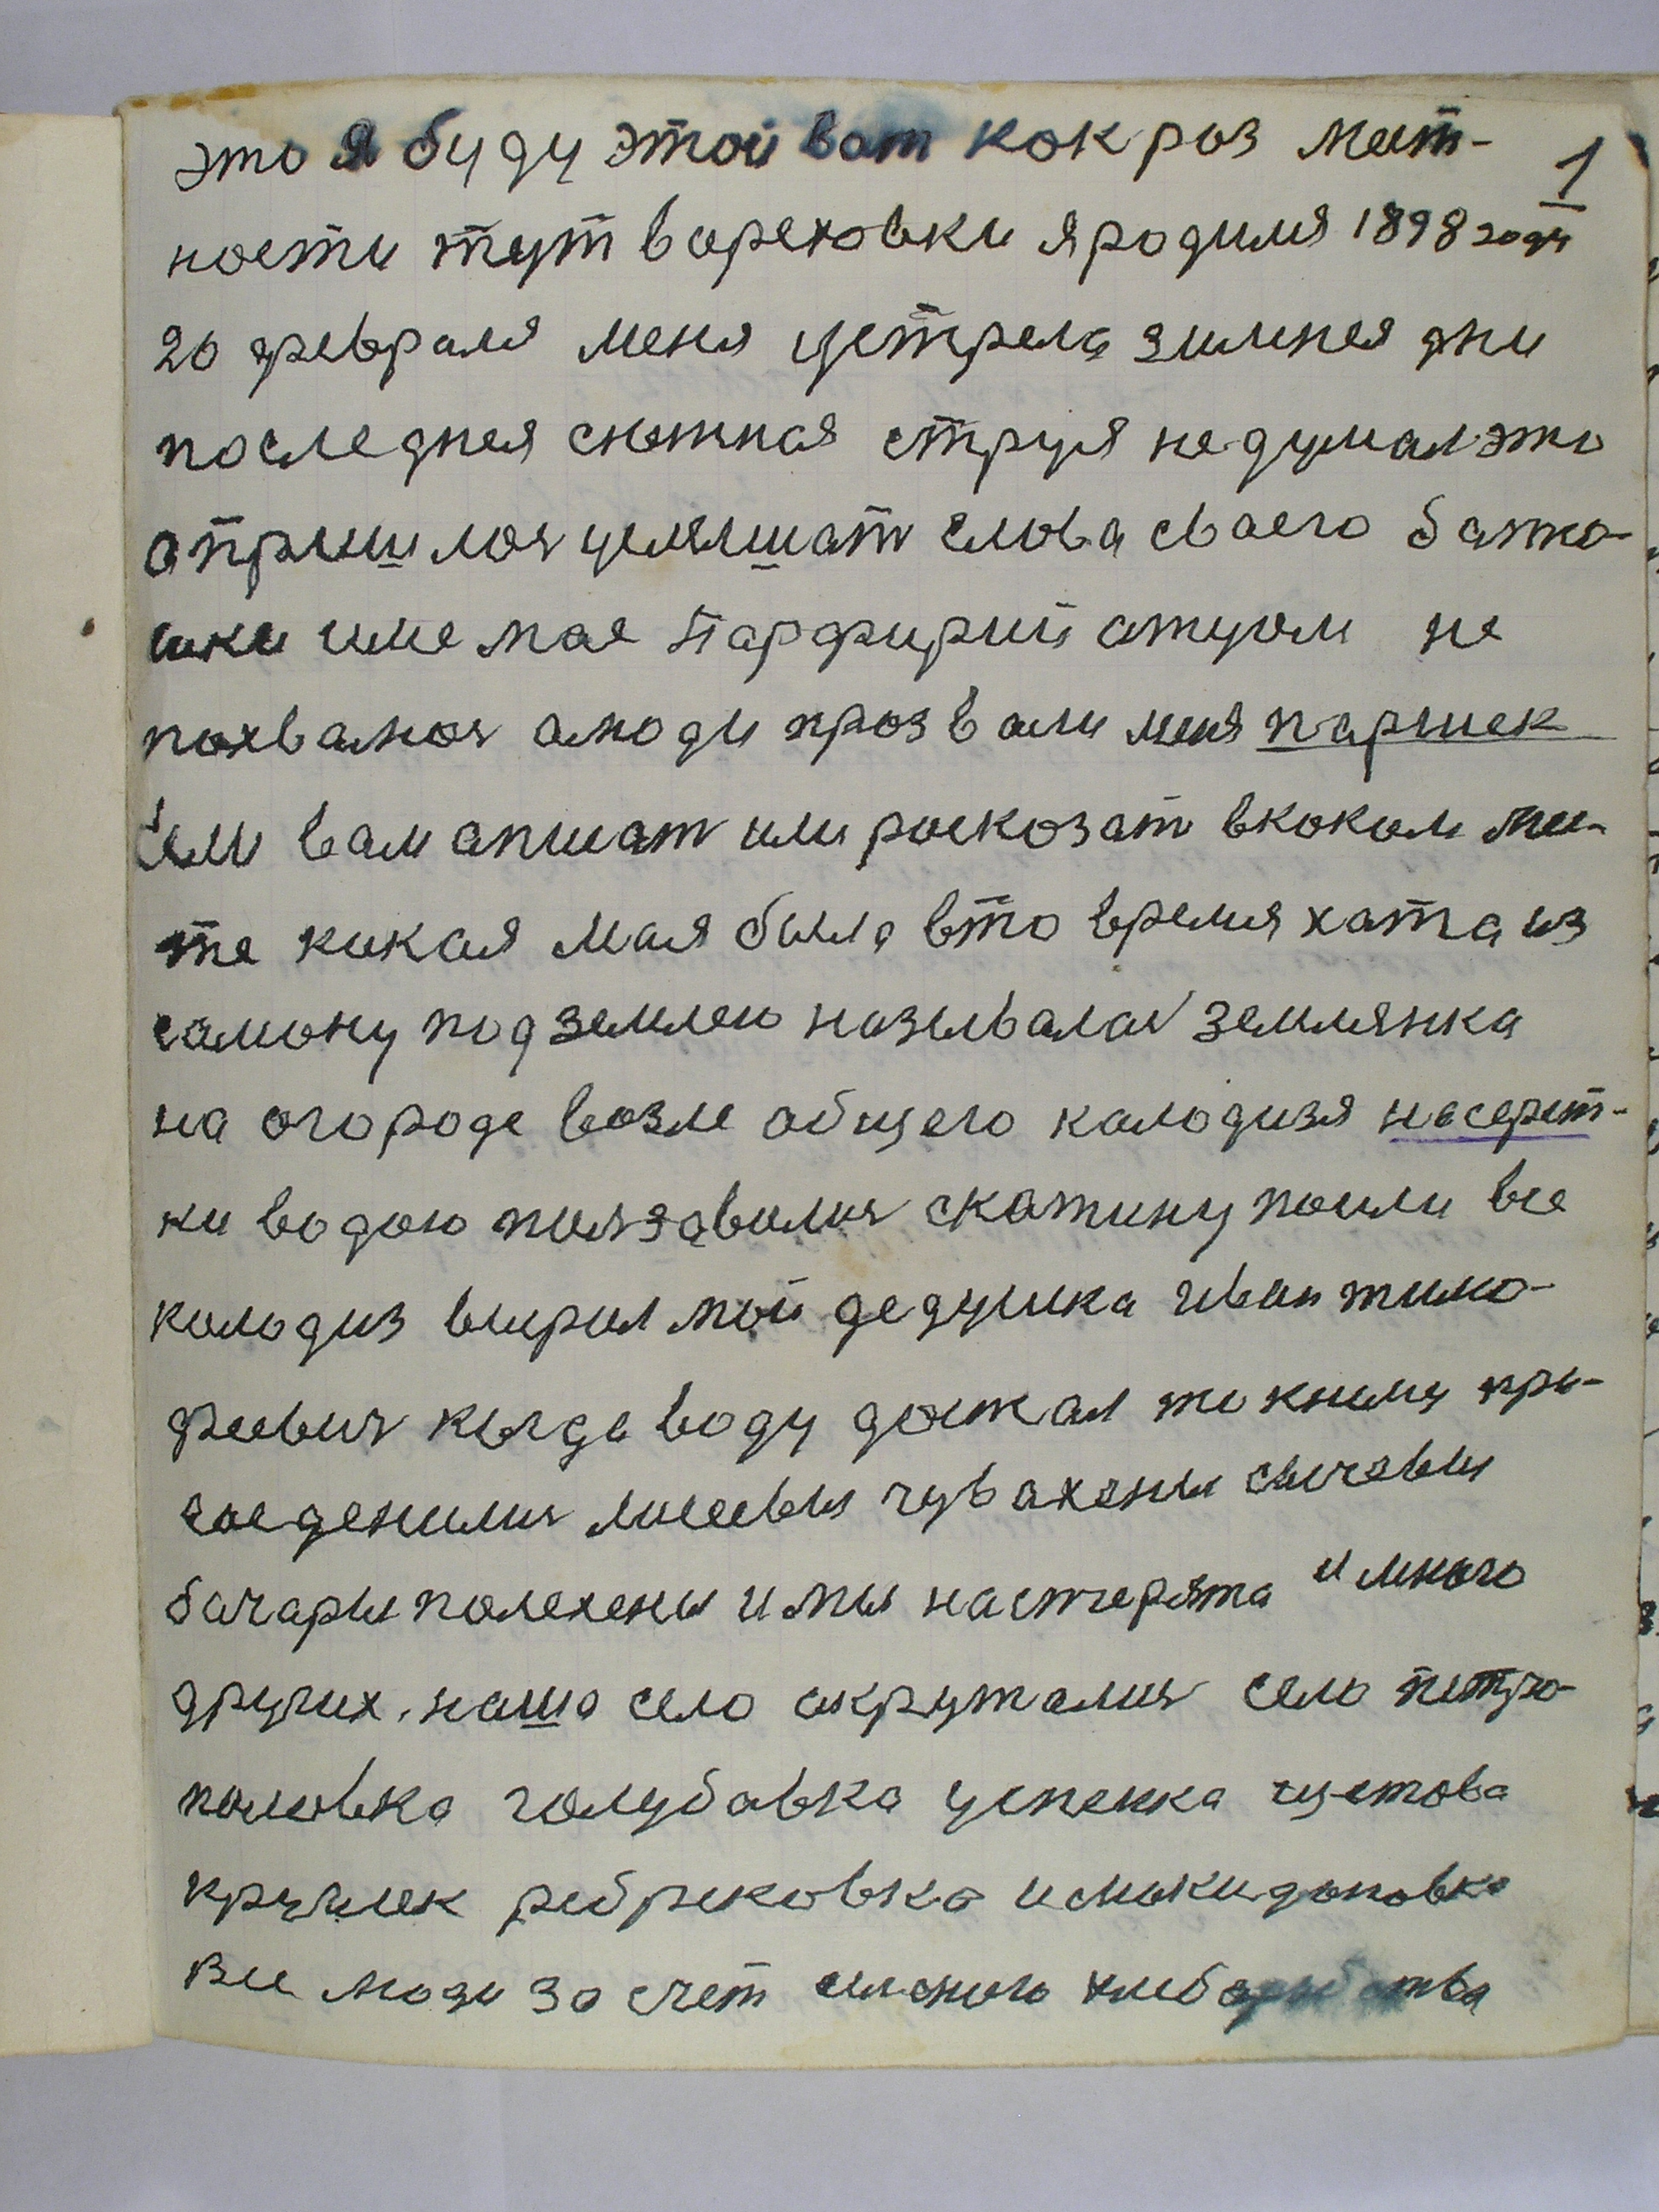 это я буду этой вот кок роз мест- 1
ности тут в ореховки я родился 1898 году
20 февраля меня устрела зимнея дни
последнея снежная струя не думал это
а пришлось услышат слова своего батю-
шки име мое Парфирий отцом не
похвалюсь а люди прозвали меня паршек
Если вам описат или росказат в коком мес-
те кокая моя была в то время хата из
самону под землею называлась землянка
на огороде возле общего колодизя насерет-
ки водою ползавилися скатину поили все
колодиз вырил мой дедушка иван тимо-
феевич когда воду достал то к нему при-
соеденилися лисевы чувахены сычевы
бачары полехены и мы настчерята и много
других. наше село акружалися село петро-
половка голубавка успенка густова
кручик ребриковка и с макидоновка
Все люди за счет силского хлебаробства